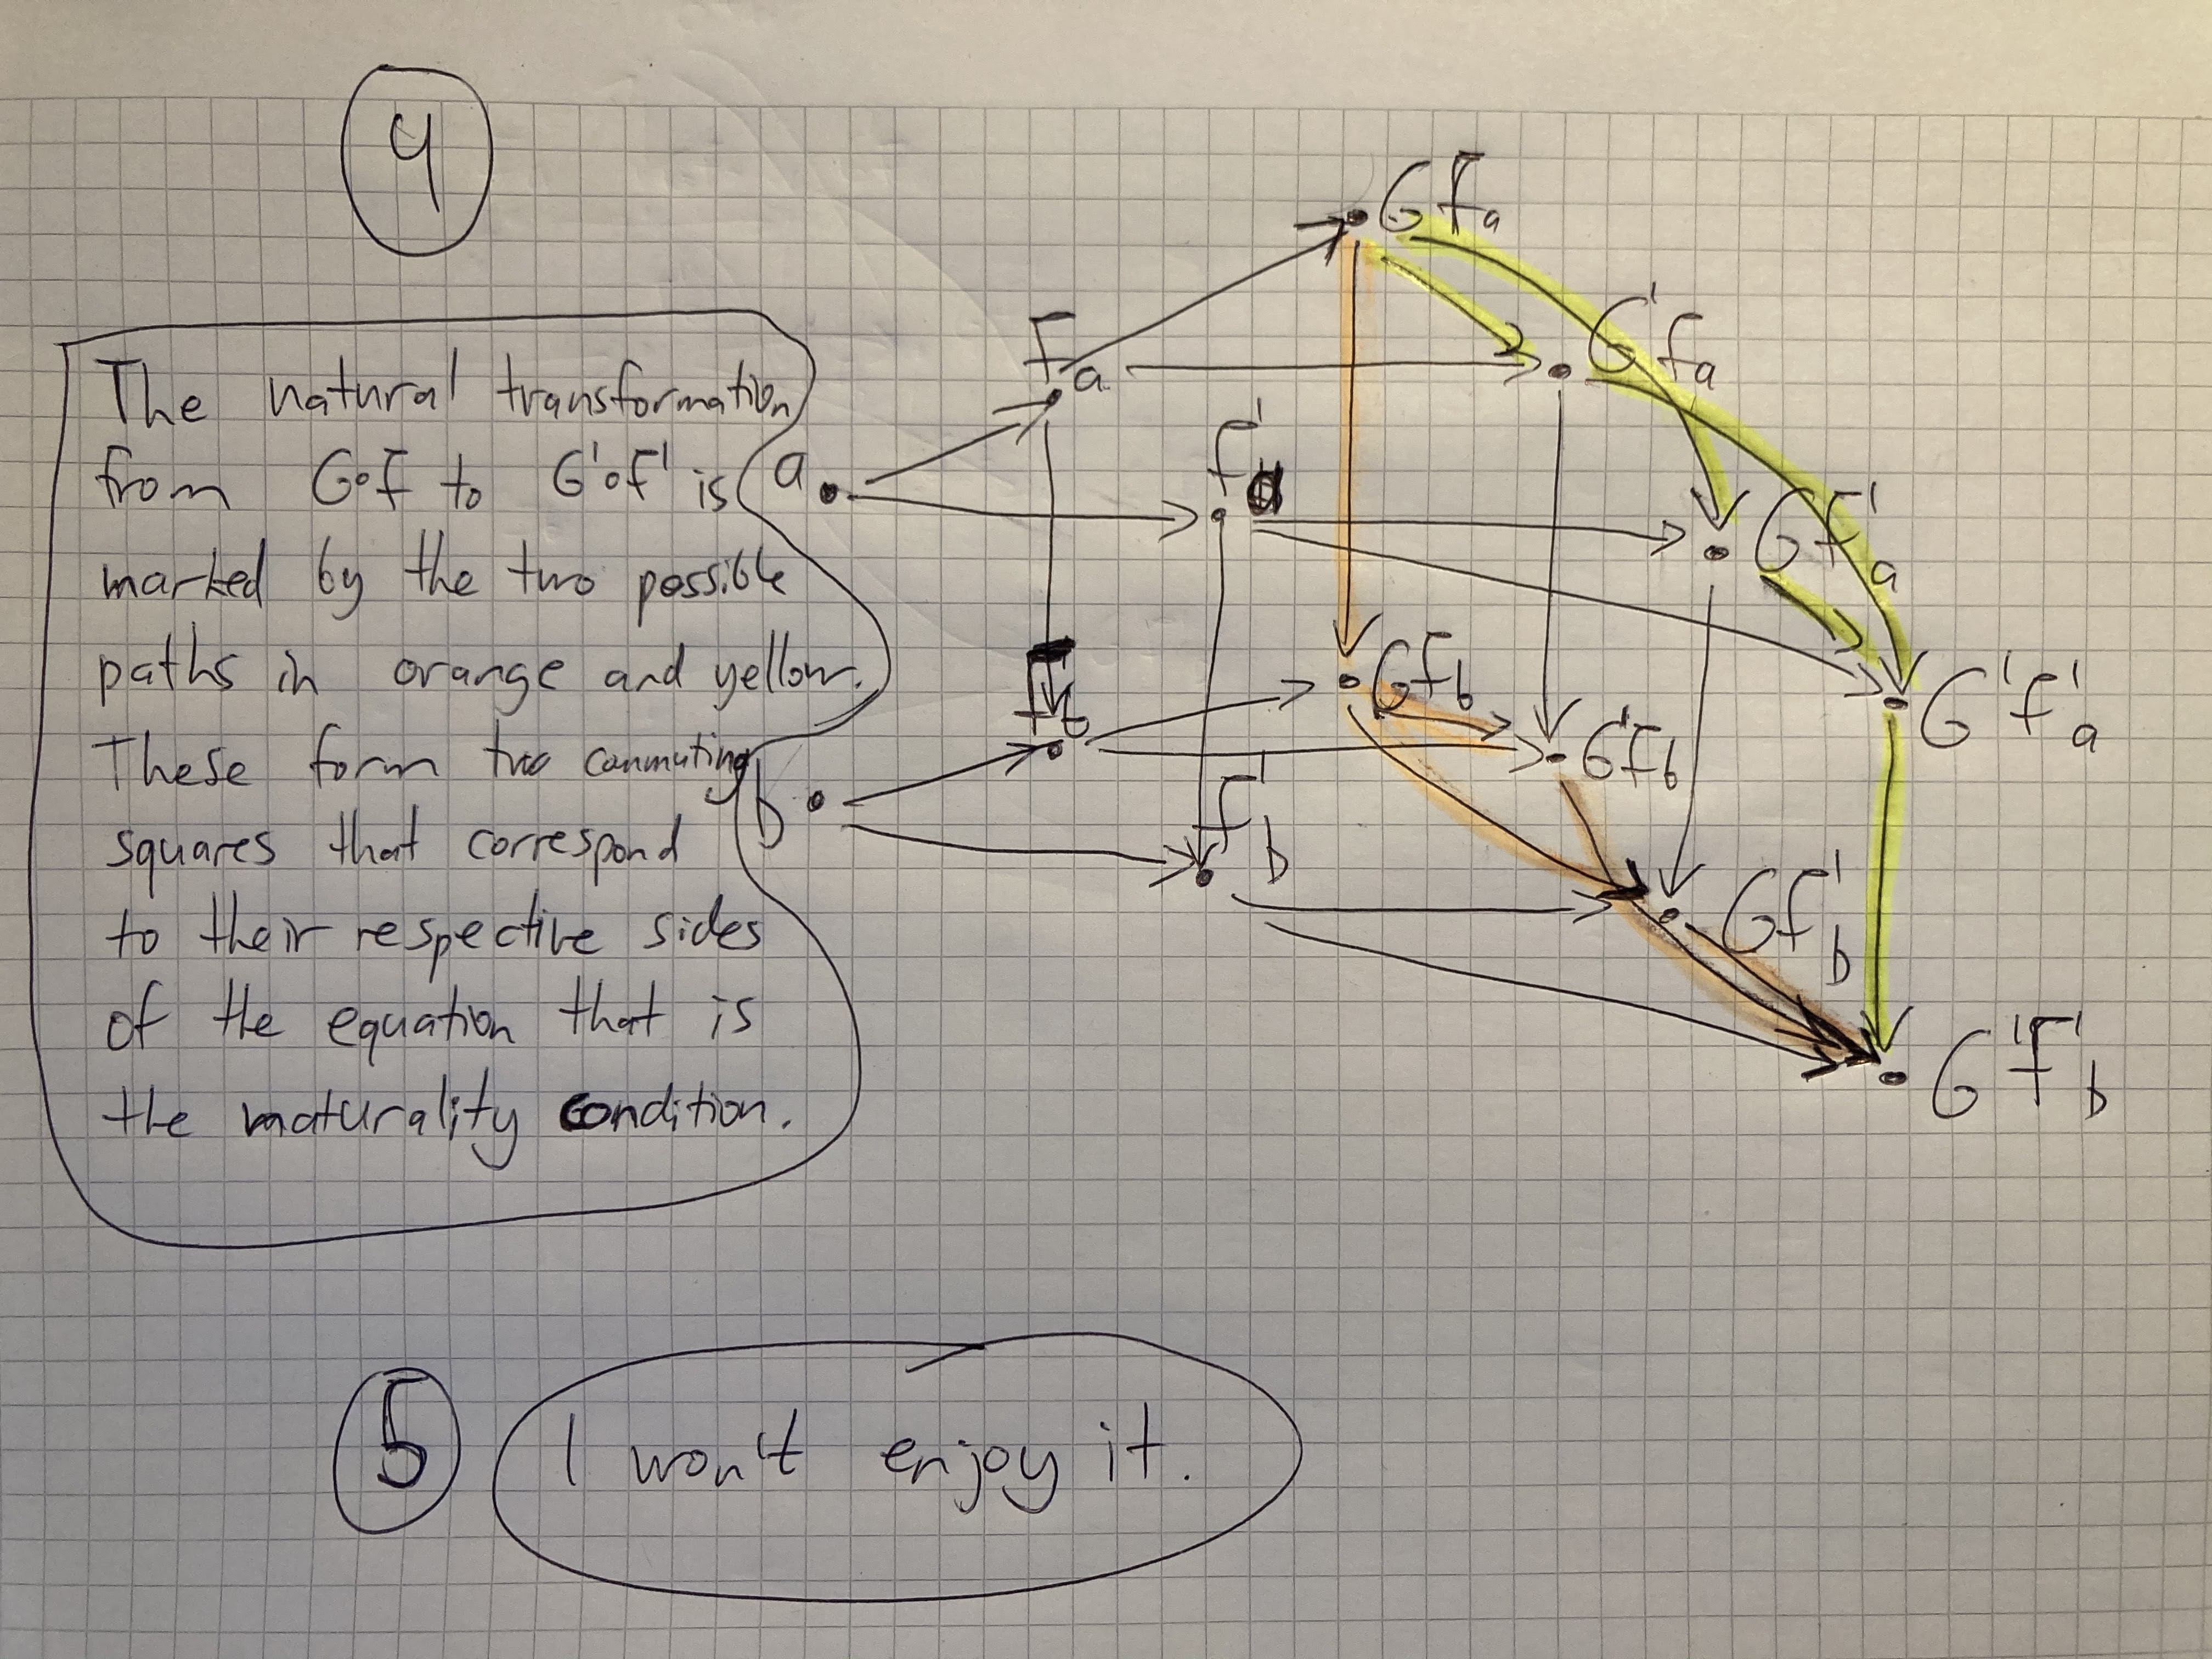 4
The natural transformation
from G∘F to G'∘F' is
marked by the two possible
paths in orange and yellow.
These form two commuting
squares that correspond
to their respective sides
of the equation that is
the naturality condition.
a
b
Fa
F'a
Fb
F'b
GFa
G'Fa
GF'a
G'F'a
GFb
G'Fb
GF'b
G'F'b
5
I won't enjoy it.